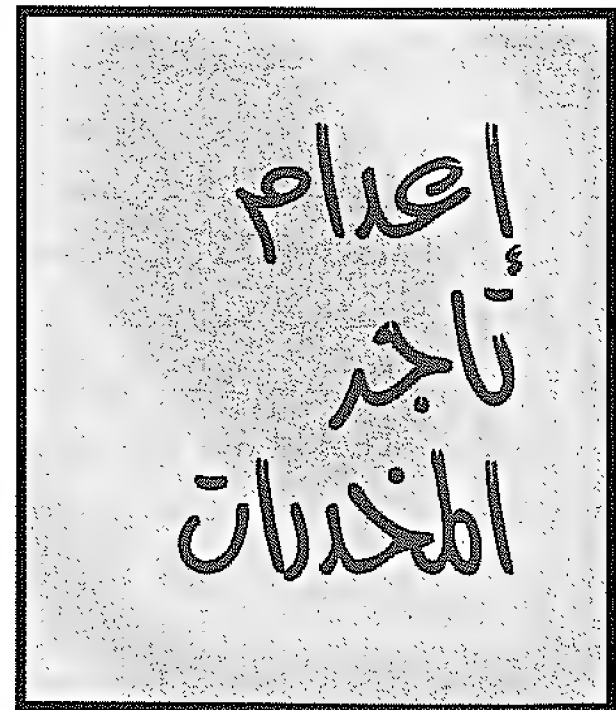 إعدام
تاجر
المخدرات